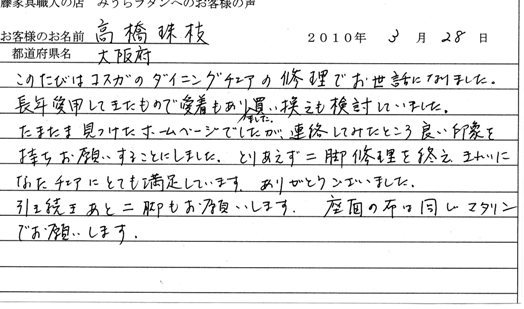 籐家具職人の店 みうらラタンへのお客様の声
お客様のお名前 高橋珠枝 2010年 3月 28日
都道府県名 大阪府
このたびはコスガのダイニングチェアの修理でお世話になりました。
長年愛用してきたもので愛着もあり買い換えも検討していました。
ました。
たまたま見つけたホームページでしたが、連絡してみたところ良い印象を
持ちお願いすることにしました。とりあえず二脚修理を終え きれいに
なったチェアにとても満足しています。ありがとうございました。
引き続きあと二脚もお願いします。 座面の布は同じマタリン
でお願いします。